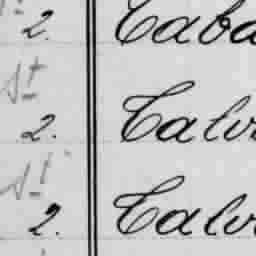 2. Caba
St
2. Calv
St
2. Calv